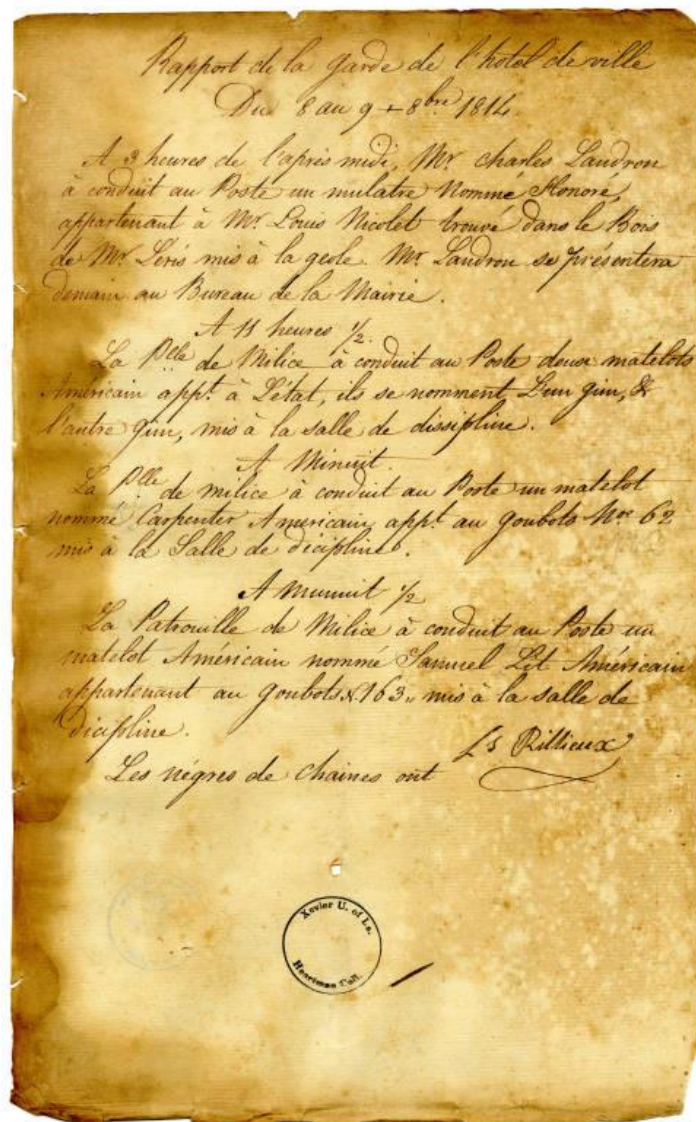 Rapport de la garde de l'hotel de ville
Du 8 au 9 - 8bre 1814.
A 3 heures de l'après midi, Mr. Charles Landron
à conduit au Poste un mulatre Nommé Honoré,
appartenant à Mr. Louis Nicolet trouvé dans le Bois
de Mr. Leris mis à la geole. Mr. Landron se présentera
demain au Bureau de la Mairie.
A 11 heures 1/2
La Plle de Milice à conduit au Poste deux matelots
Américain appt. à L'état, ils se nomment L'un gim, &
l'autre gim, mis à la salle de dissipline.
A Minuit.
La Plle de milice à conduit au Poste un matelot
nommé Carpenter Américain, appt. au gonbots Nos 62
mis à la Salle de dicipline.
A Minuit 1/2
La Patrouille de Milice à conduit au Poste un
matelot Américain nommé Samuel Lit Américain
appartenant au gonbots N.163,, mis à la salle de
dicipline.
Ls Rillieux
Les négres de chaines ont
Xavier U. of La.
Heartman Coll.